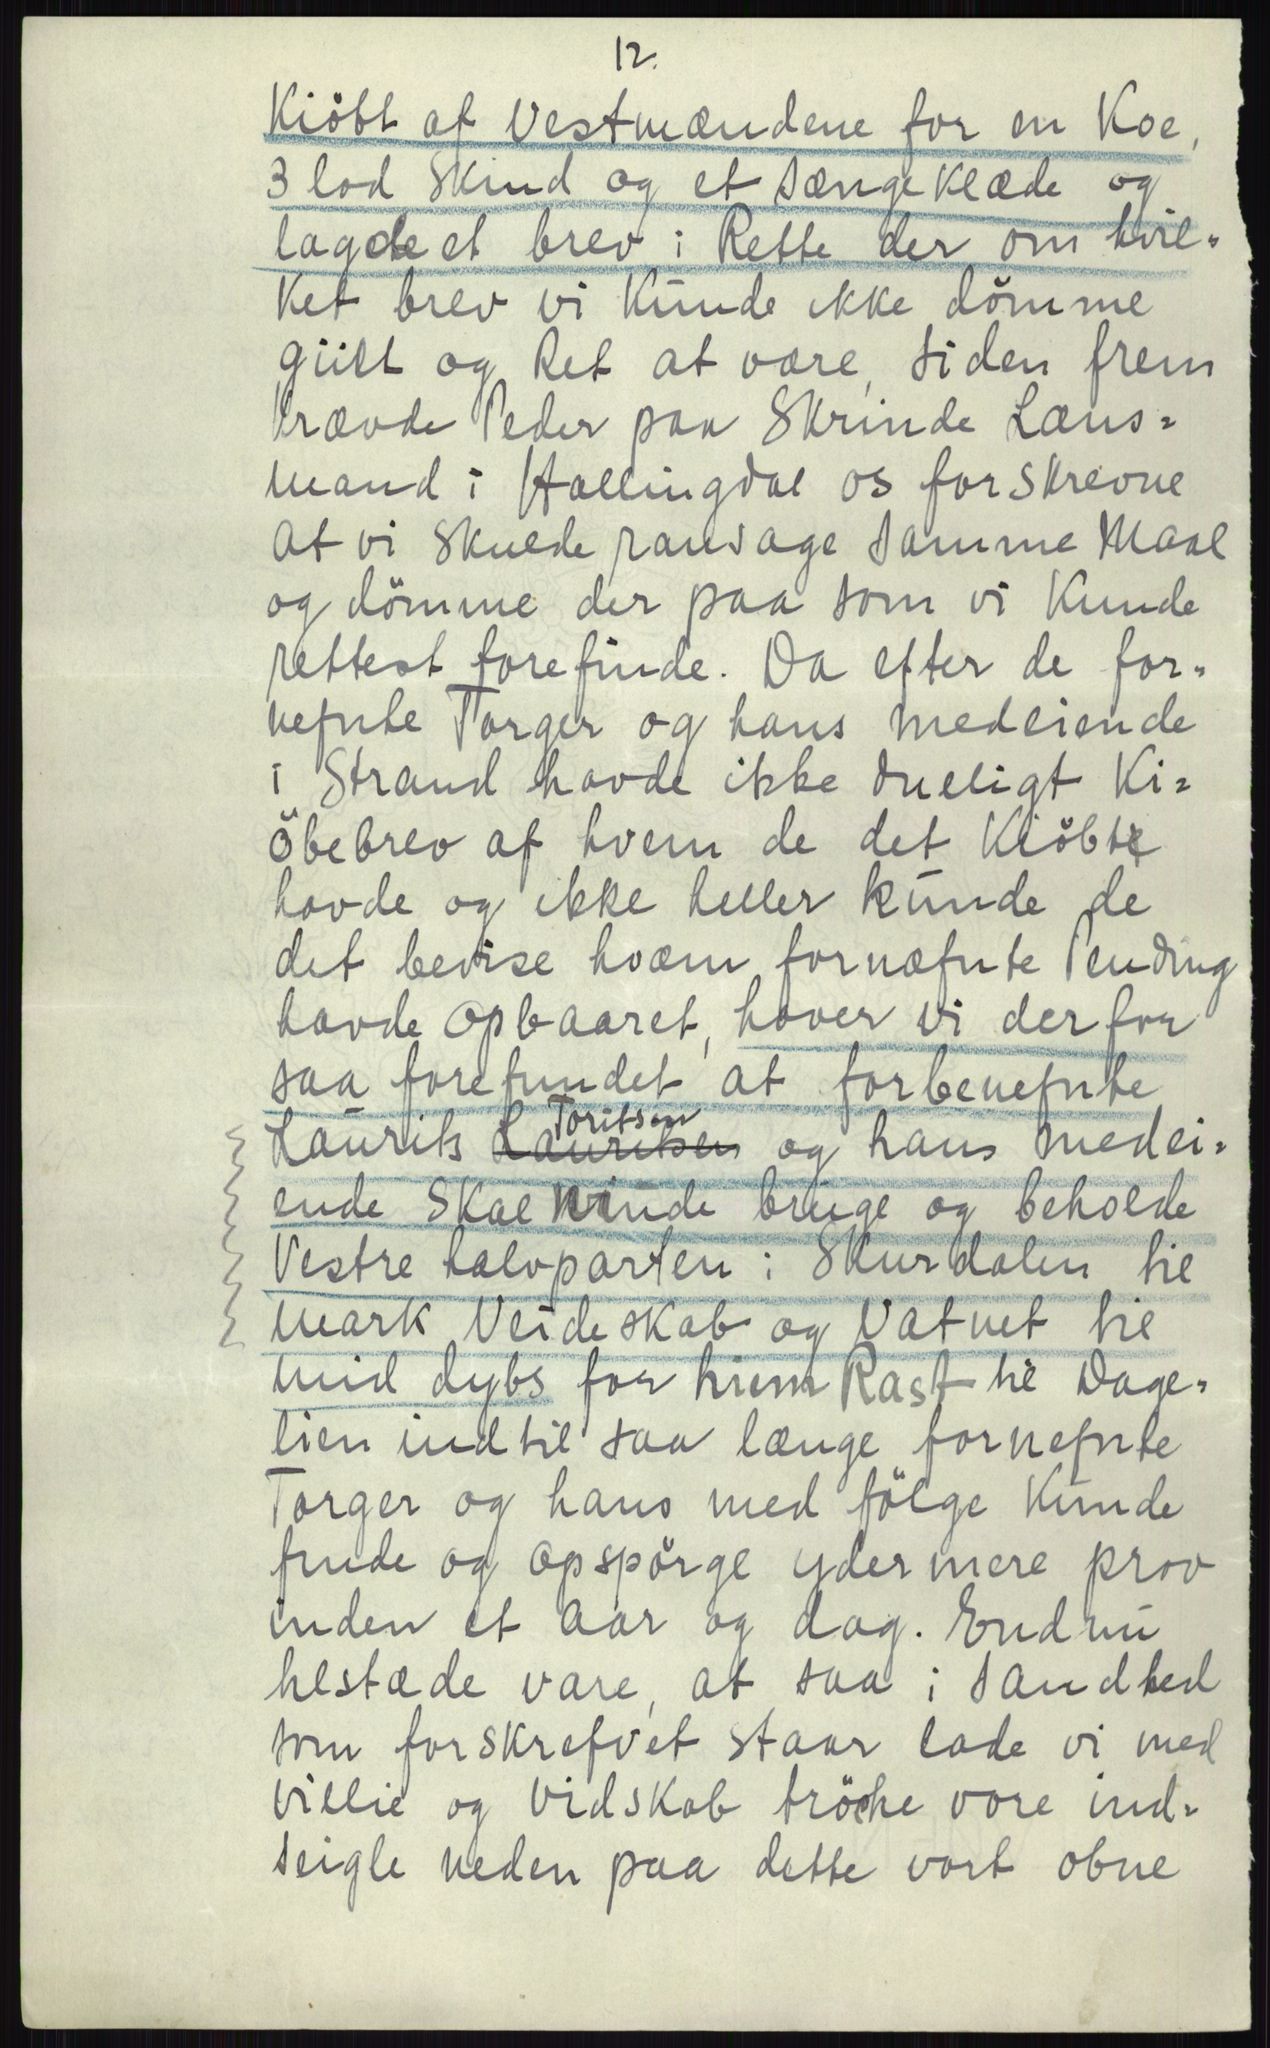 12.
Kiöbt af Vestmændene for en Koe,
3 lod Skind og et sængeklæde og
lagde et brev i Rette der om hvil=
ket brev vi Kunde ikke dömme
giilt og Ret at være, siden frem
krævde Peder paa Skrinde Læns=
mand i Hallingdal os forskrevne
at vi Skulde ransage samme Maal
og dömme der paa som vi Kunde
rettest forefinde. Da efter de for=
nefnte Torger og hans medeiende
i Strand havde ikke dueligt Ki=
öbebrev af hvem de det Kiöbt
havde og ikke heller kunde de
det bevise hvæm fornæfnte Pending
havde opbaaret, haver vi derfor
saa forefundet at forbenefnte
Laurits Lauritsen Toritsen og hans medei=
ende Skal niude bruge og beholde
Vestre halvparten i Skurdalen til
mark Veideskab og Vatnet til
mid dybs for hiem Rast til Dage=
lien indtil saa længe fornefnte
Torger og hans med fölge Kunde
finde og opspörge ydermere prov
inden et aar og dag. Endnu
hestæde vare, at saa i sandhed
som forskrefvet staar lade vi med
villie og Vidskab tröche vore ind=
seigle neden paa dette vort obne